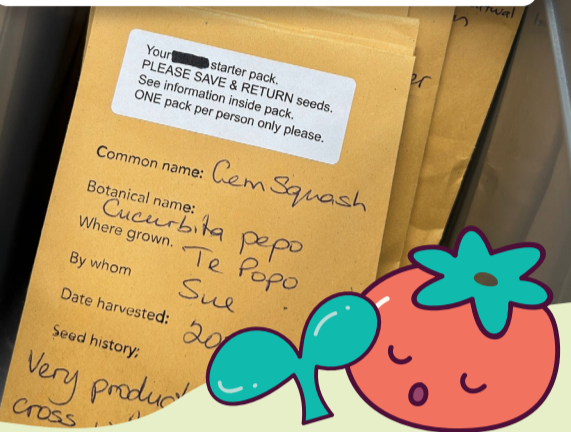 Your starter pack.
PLEASE SAVE & RETURN seeds.
See information inside pack.
ONE pack per person only please.
Common name: Gem Squash
Botanical name:
Cucurbita pepo
Where grown. Te Popo
By whom Sue
Date harvested: 20
Seed history:
Very
cross